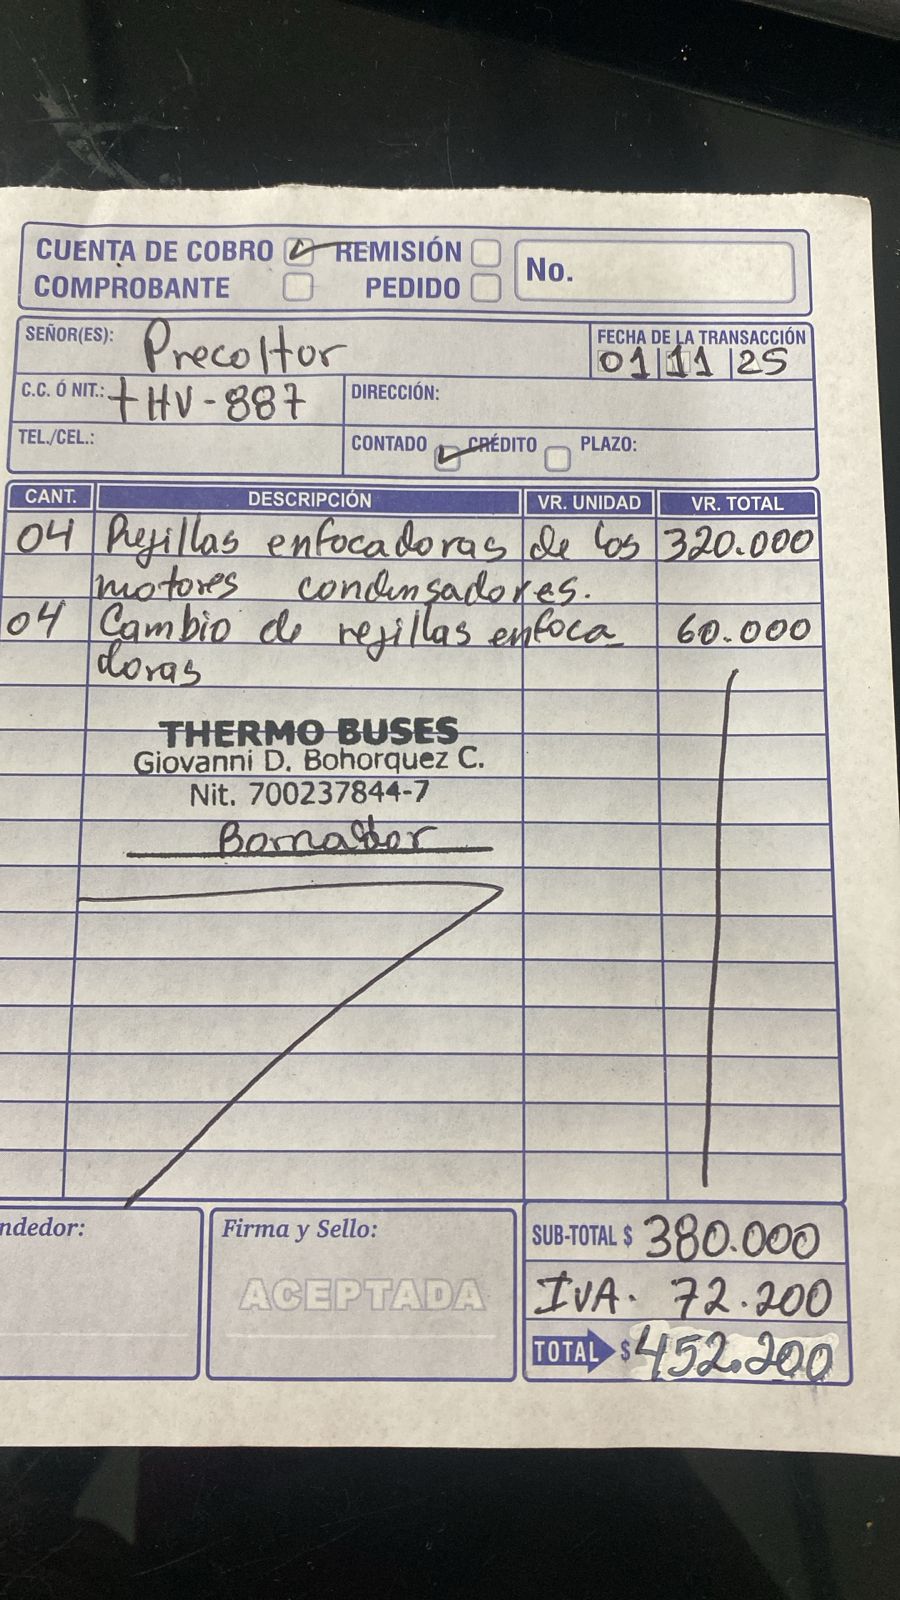 CUENTA DE COBRO REMISIÓN No.
COMPROBANTE PEDIDO
SEÑOR(ES): Precoltor FECHA DE LA TRANSACCIÓN
01 11 25
C.C. Ó NIT.: tHV-887 DIRECCIÓN:
TEL./CEL.: CONTADO CRÉDITO PLAZO:
CANT. DESCRIPCIÓN VR. UNIDAD VR. TOTAL
04 Rejillas enfocadoras de los 320.000
motores condensadores.
04 Cambio de rejillas enfoca_ 60.000
doras
THERMO BUSES
Giovanni D. Bohorquez C.
Nit. 700237844-7
ndedor: Firma y Sello: SUB-TOTAL $ 380.000
ACEPTADA IVA. 72.200
TOTAL $ 452.200